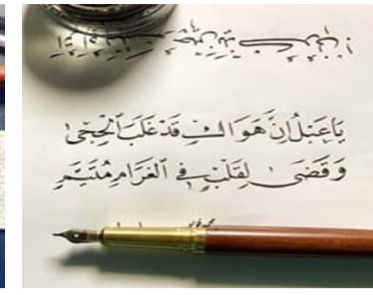 يَا عَبْلُ إِنَّ هَوَاكِ قَدْ غَلَبَ الْحِجَى
وَقَضَى لِقَلْبِي فِي الْغَرَامِ مُتَيَّم